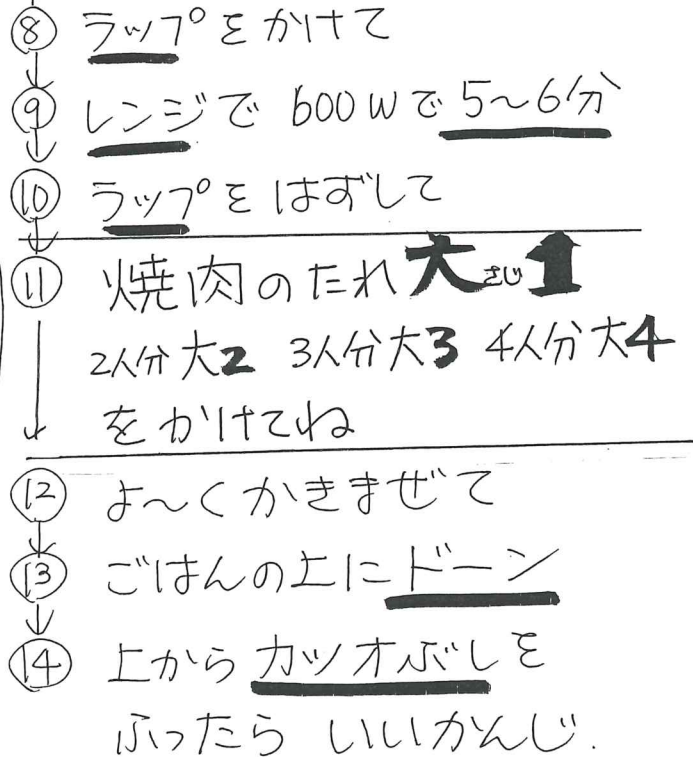 ⑧ ラップをかけて
⑨ レンジで 600Wで 5〜6分
⑩ ラップをはずして
⑪ 焼肉のたれ大さじ1
2人分大2 3人分大3 4人分大4
をかけてね
⑫ よ〜くかきまぜて
⑬ ごはんの上にドーン
⑭ 上からカツオぶしを
ふったら いいかんじ.